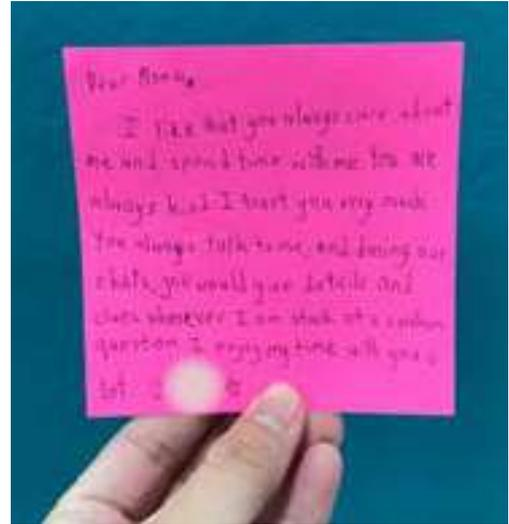 Dear
I like that you always care about
me and spend time with me. You are
always kind. I trust you very much.
You always talk to me, and during our
chats, you would give details and
clues whenever I am stuck at a certain
question. I enjoy my time with you a
lot.